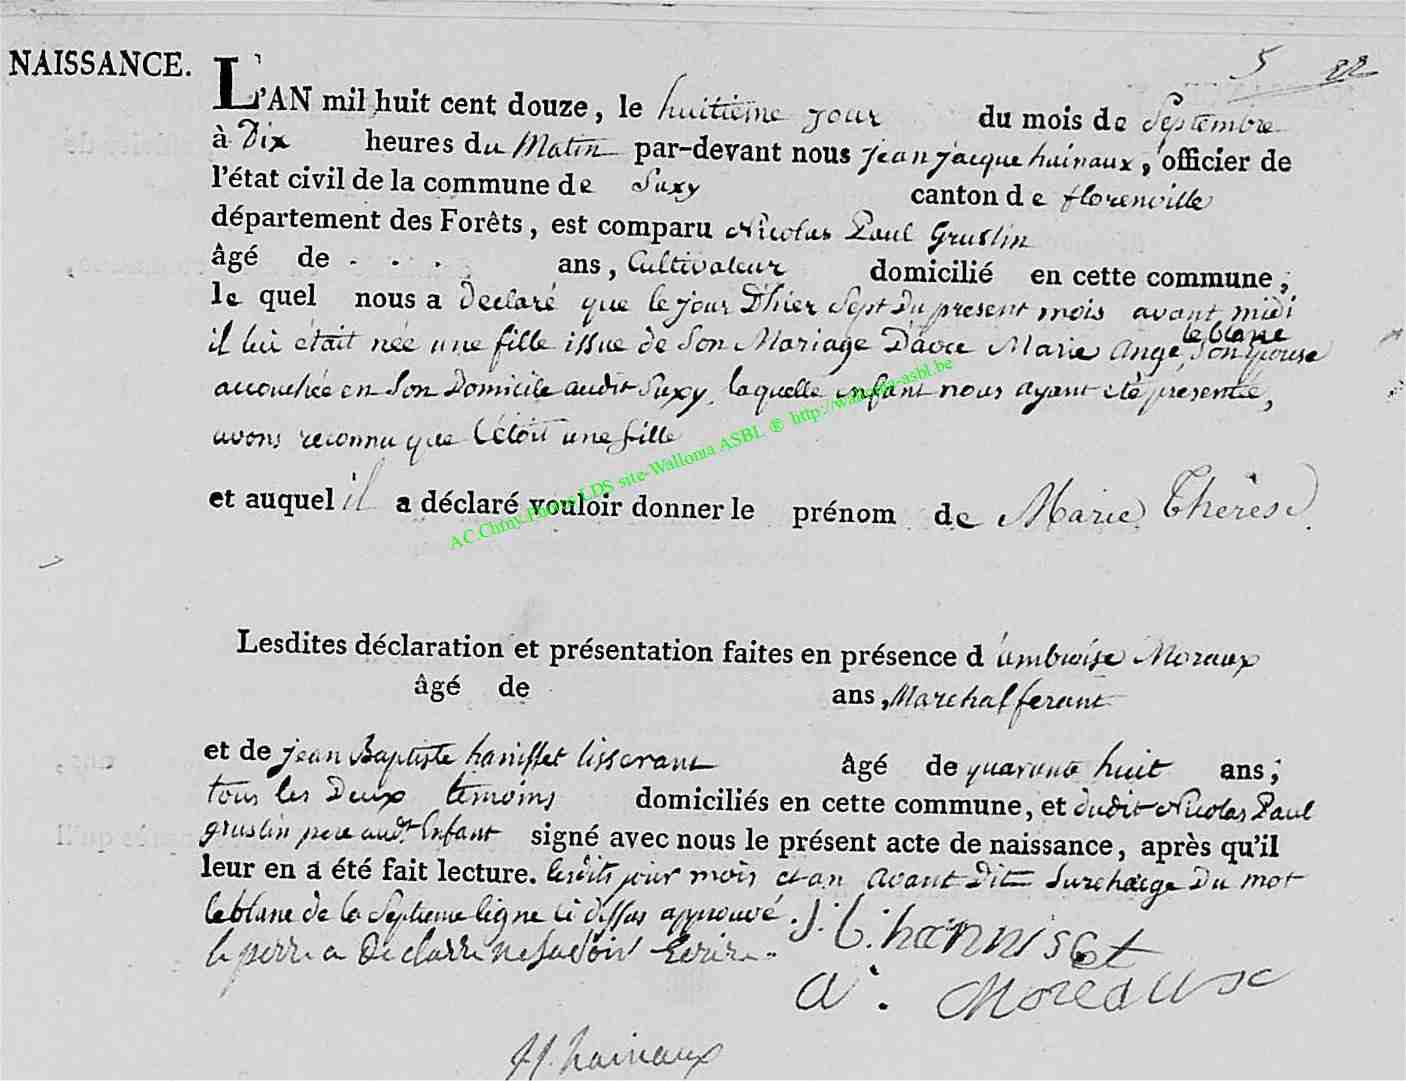 5 22
NAISSANCE.
L'AN mil huit cent douze, le huitieme jour du mois de Septembre
à Dix heures du Matin par-devant nous jean jacque hainaux, officier de
l'état civil de la commune de Suxy canton de florenville
département des Forêts, est comparu Nicolas Paul Gruslin
âgé de . . . . ans, Cultivateur domicilié en cette commune;
le quel nous a Declaré que le jour D'hier Sept Du present mois avant midi
il lui était née une fille issue de Son Mariage D'avec Marie Ange leblanc Son Epouse
accouchée en Son Domicile audit Suxy, laquelle enfant nous ayant eté présentée,
avons reconnu que C'étoit une fille
et auquel il a déclaré vouloir donner le prénom de Marie Thérèse.
AC.Chiny.Photos LDS site-Wallonia ASBL ® http://wallonia-asbl.be
Lesdites déclaration et présentation faites en présence d'ambroise Moraux
âgé de ans, Marchal ferant
et de jean Baptiste hanisset tisserant âgé de quarante huit ans;
tous les Deux témoins domiciliés en cette commune, et dudit Nicolas Paul
gruslin pere audt Enfant signé avec nous le présent acte de naissance, après qu'il
leur en a été fait lecture. lesdits jour mois et an avant Dit Surcharge Du mot
leblanc de la Septieme ligne ci dessus approuvé. J. b. hannisset
le perre a Declarre ne Savoir Ecrire.
a. Moreaux
JJ. hainaux